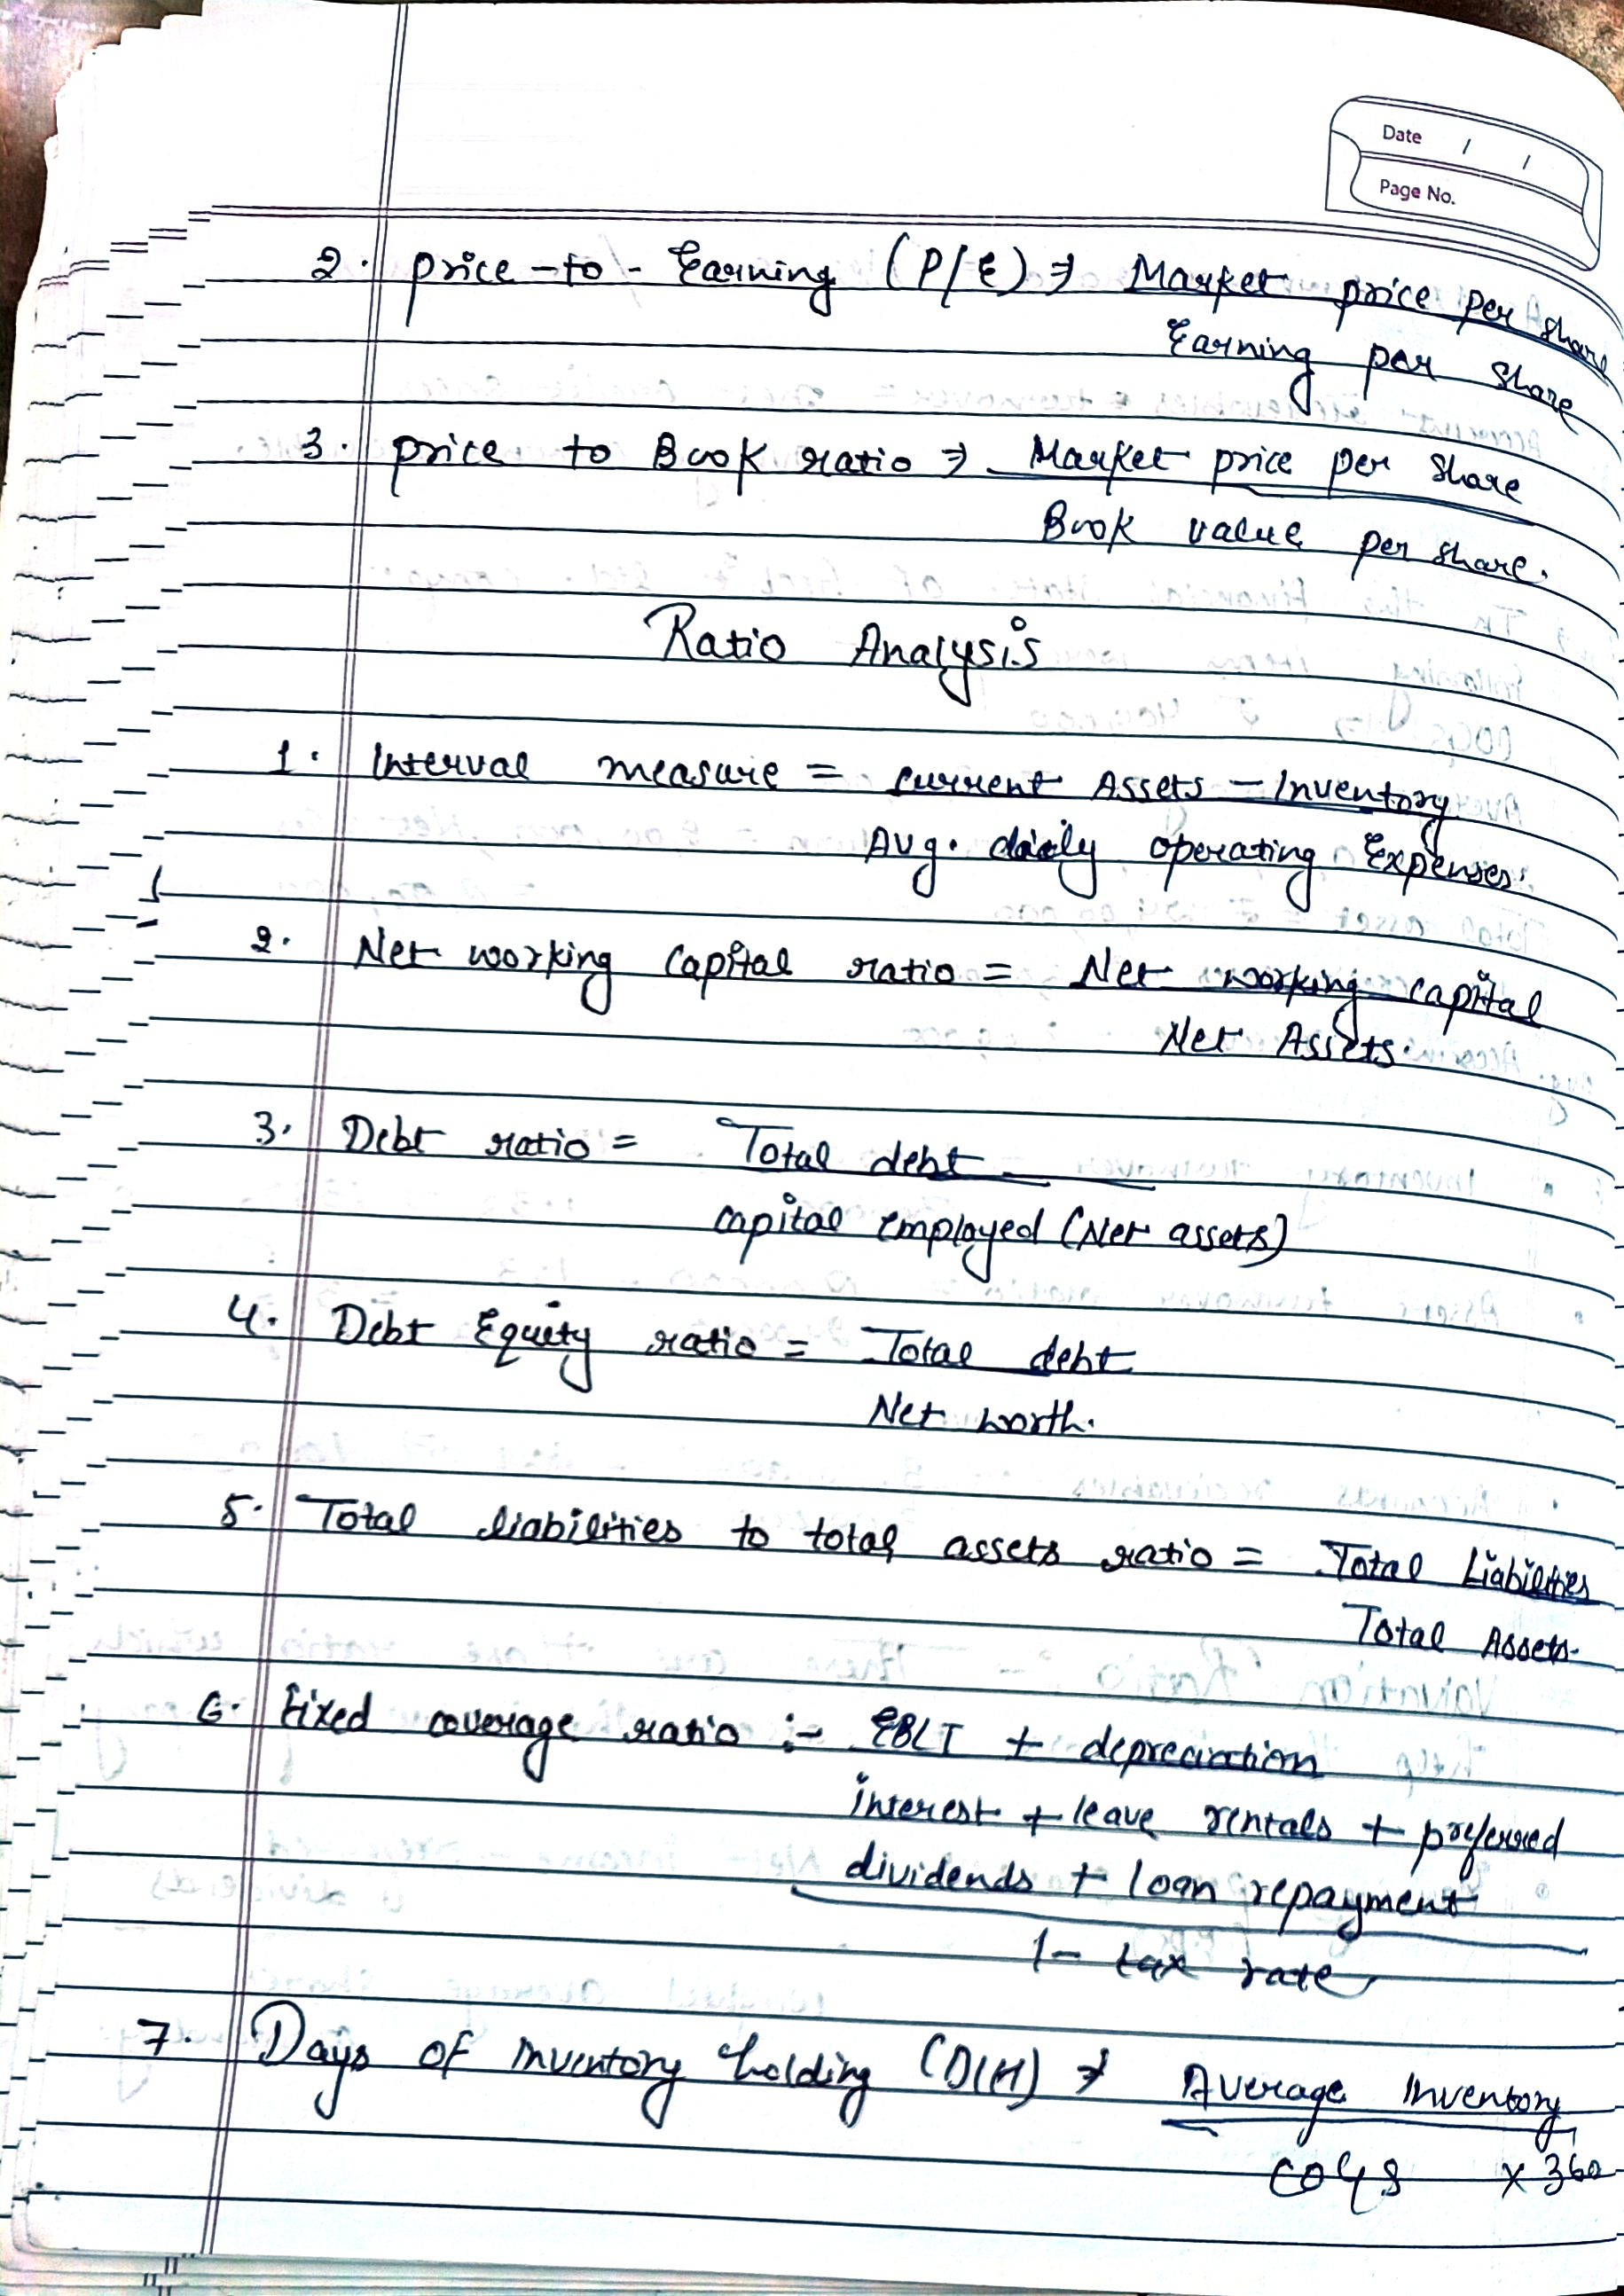 Date / /
Page No.
2. price-to-Earning (P/E) ⇒ Market price per share
Earning per share
3. price to Book ratio ⇒ Market price per share
Book value per share.
Ratio Analysis
1. Interval measure = current Assets - Inventory
Avg. daily operating Expenses.
2. Net working capital ratio = Net working capital
Net Assets.
3. Debt ratio = Total debt
capital employed (Net assets)
4. Debt Equity ratio = Total debt
Net worth.
5. Total liabilities to total assets ratio = Total Liabilities
Total Assets.
6. Fixed coverage ratio :- EBIT + depreciation
interest + leave rentals + preferred
dividends + loan repayment
1- tax rate
7. Days of inventory holding (DIH) ⇒ Average Inventory
COGS × 360